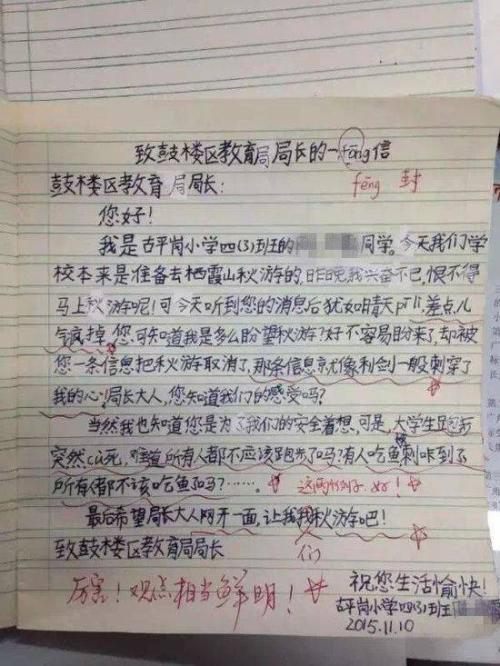 致鼓楼区教育局局长的一fōng信
fēng 封
鼓楼区教育局局长：
您好！
我是古平岗小学四(3)班的 同学。今天我们学
校本来是准备去栖霞山秋游的，昨晚我兴奋不已，恨不得
马上秋游呢！可今天听到您的消息后犹如晴天pīlì，差点儿
气疯掉。您可知道我是多么盼望秋游？好不容易盼来了，却被
您一条信息把秋游取消了，那条信息就像利剑一般刺穿了
我的心！局长大人，您知道我们的感受吗？
当然我也知道您是为了我们的安全着想，可是，大学生跑步
突然cù死，难道所有人都不应该跑步了吗？有人吃鱼被刺咔到了
所有人都不该吃鱼了吗？……。 这两个例子好！
最后希望局长大人网开一面，让我我秋游吧！
们
致鼓楼区教育局局长
厉害！观点相当鲜明！
祝您生活愉快！
古平岗小学四(3)班
2015.11.10